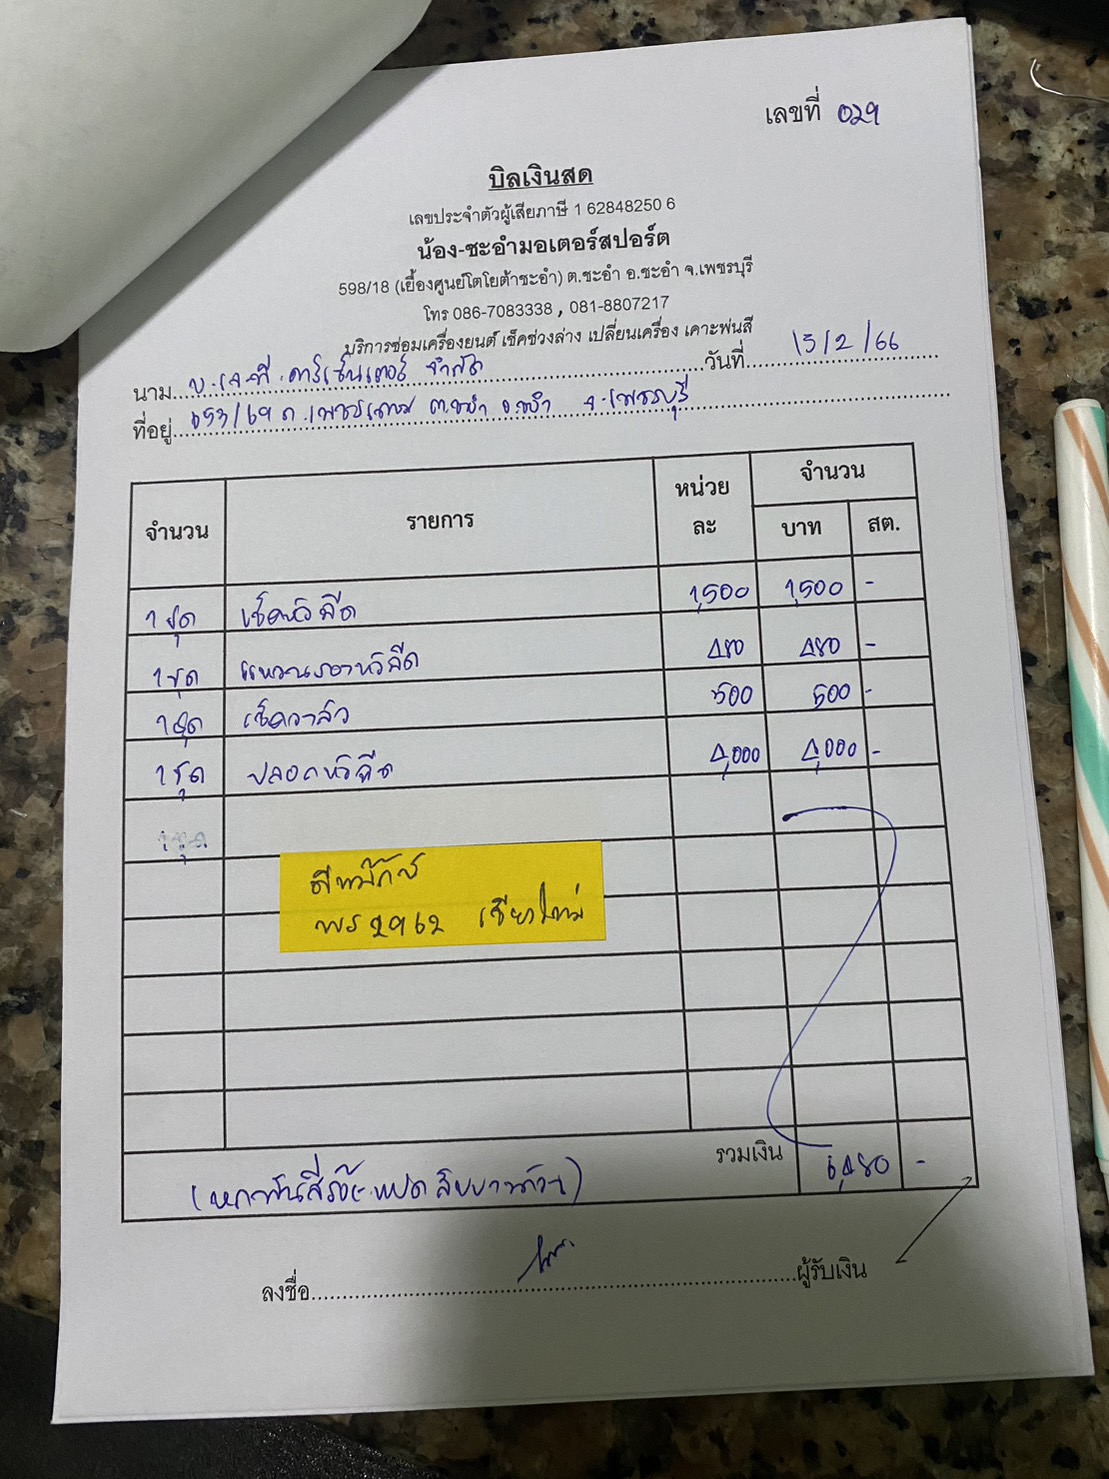 เลขที่ 029
บิลเงินสด
เลขประจำตัวผู้เสียภาษี 1 62848250 6
น้อง-ชะอำมอเตอร์สปอร์ต
598/18 (เยื้องศูนย์โตโยต้าชะอำ) ต.ชะอำ อ.ชะอำ จ.เพชรบุรี
โทร 086-7083338 , 081-8807217
บริการซ่อมเครื่องยนต์ เช็คช่วงล่าง เปลี่ยนเครื่อง เคาะพ่นสี
นาม บ.เจ.ที.คาร์เซ็นเตอร์ จำกัด วันที่ 15/2/66
ที่อยู่ 653/69 ถ.เพชรเกษม ต.ชะอำ อ.ชะอำ จ.เพชรบุรี
จำนวน รายการ หน่วยละ จำนวน
บาท สต.
1 ชุด เช็คหัวฉีด 1,500 1,500 -
1 ชุด แหวนรองหัวฉีด 480 480 -
1 ชุด เช็ควาล์ว 500 500 -
1 ชุด ปลอกหัวฉีด 4,000 4,000 -
1 ชุด
ดีแม็กซ์
ผร 2962 เชียงใหม่
รวมเงิน 6,480 -
(หกพันสี่ร้อยแปดสิบบาทถ้วน)
ลงชื่อ ผู้รับเงิน